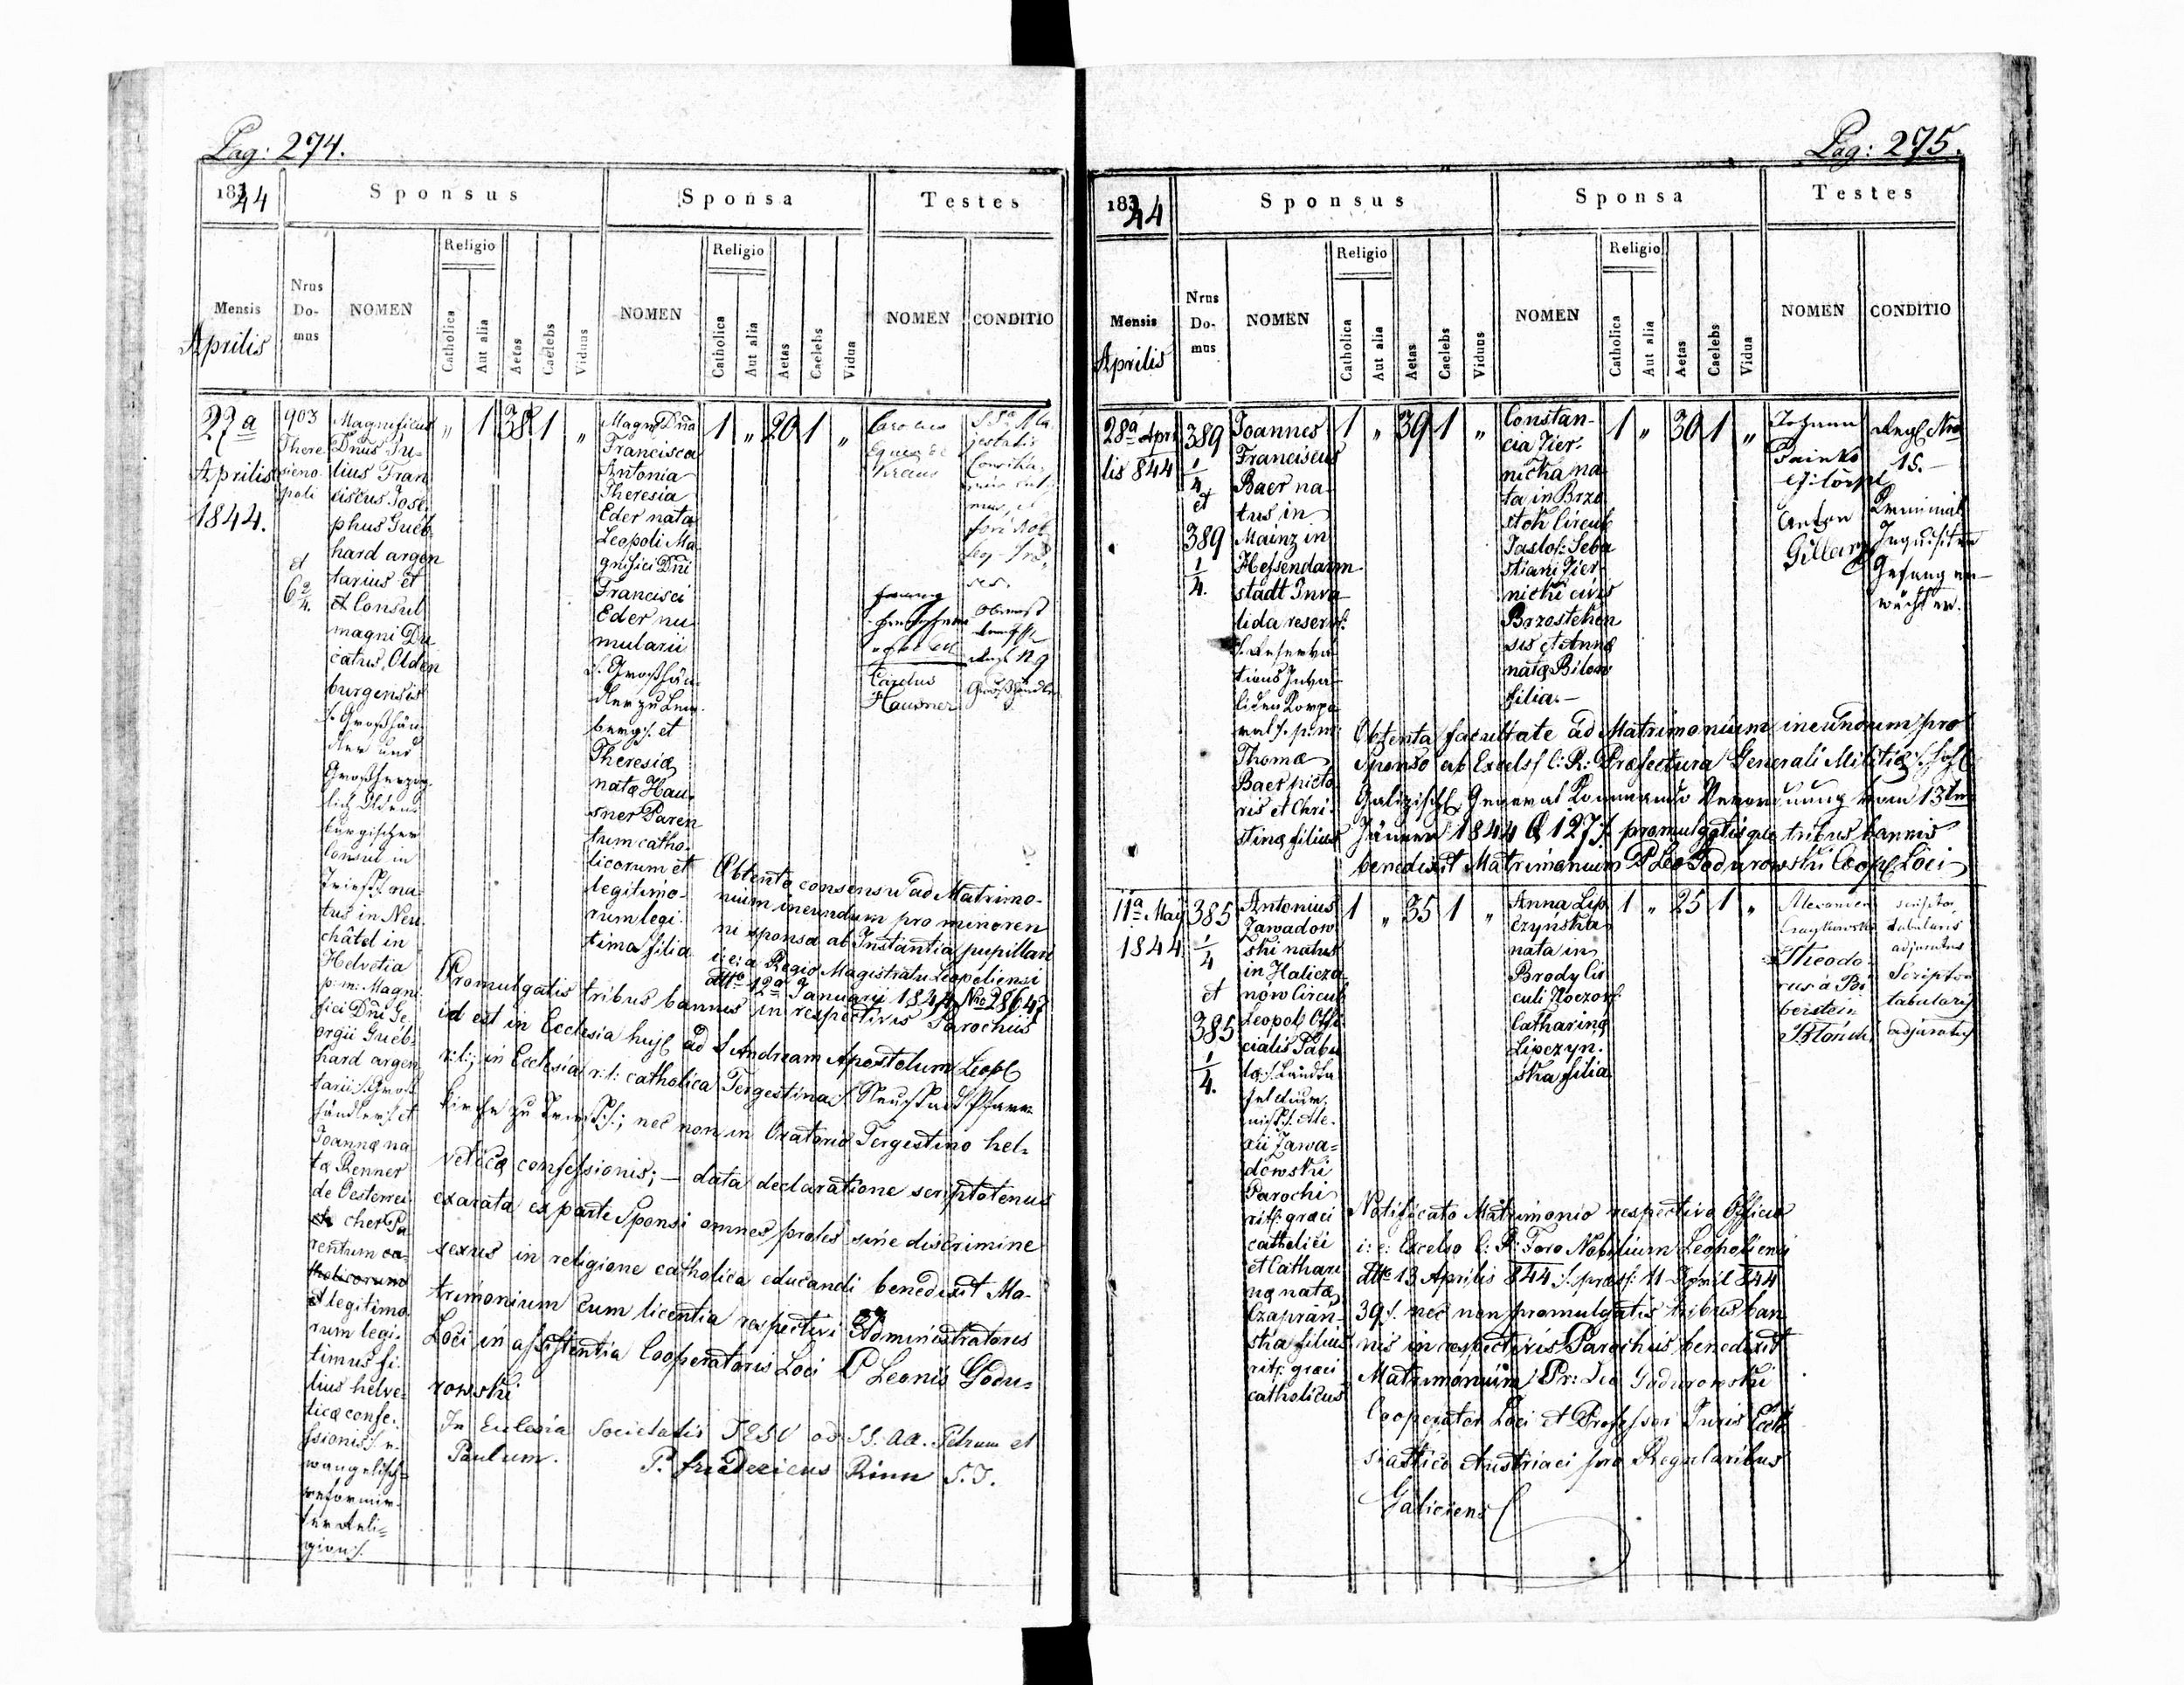 Pag: 274.
1844
Sponsus
Sponsa
Testes
Mensis
Aprilis
Nrus
Do-
mus
NOMEN
Religio
Catholica
Aut alia
Aetas
Caelebs
Viduus
NOMEN
Religio
Catholica
Aut alia
Aetas
Caelebs
Vidua
NOMEN
CONDITIO
27a
Aprilis
1844.
903
There
sieno
poli
et
6 2/4.
Magnificus
Dnus Ju-
lius Fran
ciscus Jose
phus Guéb
hard argen
tarius et
et Consul
magni Du
catus, Olden
burgensis
/: Großhän
dler und
Großherzog
lich Olden
burgischer
Consul in
Triest :/ na
tus in Neu
châtel in
Helvetia
p: m: Magni
fici Dni Ge
orgii Guéb-
hard argen
tarii /: Groß
händler :/ et
Joanna na
ta Renner
de Oesterrei
cher Pa
rentum ca-
tholicorum
et legitimo
rum legi-
timus fi-
lius helve-
ticæ confe-
ssionis /: e-
vangelisch
reformir-
ter Reli-
gion :/.
" 1 38 1 "
Magn: Dna
Francisca
Antonia
Theresia
Eder nata
Leopoli Ma
gnifici Dni
Francisci
Eder nu
mularii
/: Großhän
dler zu Lem
berg :/ et
Theresiæ
natæ Hau-
sner Paren
tum catho-
licorum et
legitimo-
rum legi-
tima filia
1 " 20 1 "
Carolus
Eques de
Kraus
Carolus
Hausner
Großhändler
Obtento consensu ad Matrimo-
nium ineundum pro minoren
ni sponsa ab Instantia pupillari
i: e: a Regio Magistratu Leopoliensi
dtto 12a Januarii 1844 Nro 28647
Promulgatis tribus bannis in respectivis Parochiis
id est in Ecclesia huj: ad S Andream Apostolum Leopol
r: l:; in Ecclesia r: l: catholica Tergestina /: Neustadt Pfarr
kirche zu Triest :/; nec non in Oratorio Tergestino hel-
veticæ confessionis; – data declaratione scriptotenus
exarata ex parte Sponsi omnes proles sine discrimine
sexus in religione catholica educandi benedixit Ma-
trimonium cum licentia respectivi Administratoris
Loci in assistentia Cooperatoris Loci P Leonis Godu-
rowski
In Ecclesia Societatis JESU ad SS. AA. Petrum et
Paulum. P. Fridericus Rinn S.J.
Pag: 275.
1844
Sponsus
Sponsa
Testes
Mensis
Aprilis
Nrus
Do-
mus
NOMEN
Religio
Catholica
Aut alia
Aetas
Caelebs
Viduus
NOMEN
Religio
Catholica
Aut alia
Aetas
Caelebs
Vidua
NOMEN
CONDITIO
28a Apri
lis 844
389
1/4
et
389
1/4.
Joannes
Franciscus
Baer na-
tus in
Mainz in
Hessendarm
stadt Inva
lida reserv:
/: Reserva
tions Inva-
liden Korpo
ral :/ p: m:
Thomæ
Baer picto
ris et Chri-
stinæ filius
1 " 39 1 "
Constan-
cia Zier-
nicka na
ta in Brzo
stek Circul
Jaslof: Seba
stiani Zier
nicki civis
Brzosteken
sis et Annæ
natæ Bilow
filia. –
1 " 30 1 "
Johann
Anton
Gillarz
15. –
Kriminal
Inquisiten
Gefangen
wächter.
Obtenta facultate ad Matrimonium ineundum pro
Sponso ab Excels: C: R: Præfectura Generali Militiæ /:
Galizisch General Kommando Verordnung vom 13ten
Jänner 1844 Q 127 :/ promulgatisque tribus bannis
benedixit Matrimonium P Leo Godurowski Coop: Loci
11a Maij
1844
385
1/4
et
385
1/4.
Antonius
Zawadow
ski natus
in Halicza
nów Circul
Leopol: Offi-
cialis Tabu
læ /: Landta
fel
:/ Ale-
xii Zawa-
dowski
Parochi
rit: græci
catholici
et Cathari
næ natæ
Czaprań-
ska filius
rit: græci
catholicus
1 " 35 1 "
Anna Lip
czyńska
nata in
Brody Cir
culi Zloczov:
Catharinæ
Lipczyn-
ska filia
1 " 25 1 "
Alexander
scriptor
tabularis
adjuratus
Theodo-
rus à Bi
berstein
Błoński
Scriptor
tabularis
adjuratus
Notificato Matrimonio respectivo Officio
i: e: Excelso C: R: Foro Nobilium Leopoliensi
dtto 13 Aprilis 844 /: præs: 11 April 844
39 :/ nec non promulgatis tribus ban
nis in respectivis Parochiis benedixit
Matrimonium Pr: Leo Godurowski
Cooperator Loci et Professor Juris Eccle
siastico Austriaci pro Regularibus
Galiciens: